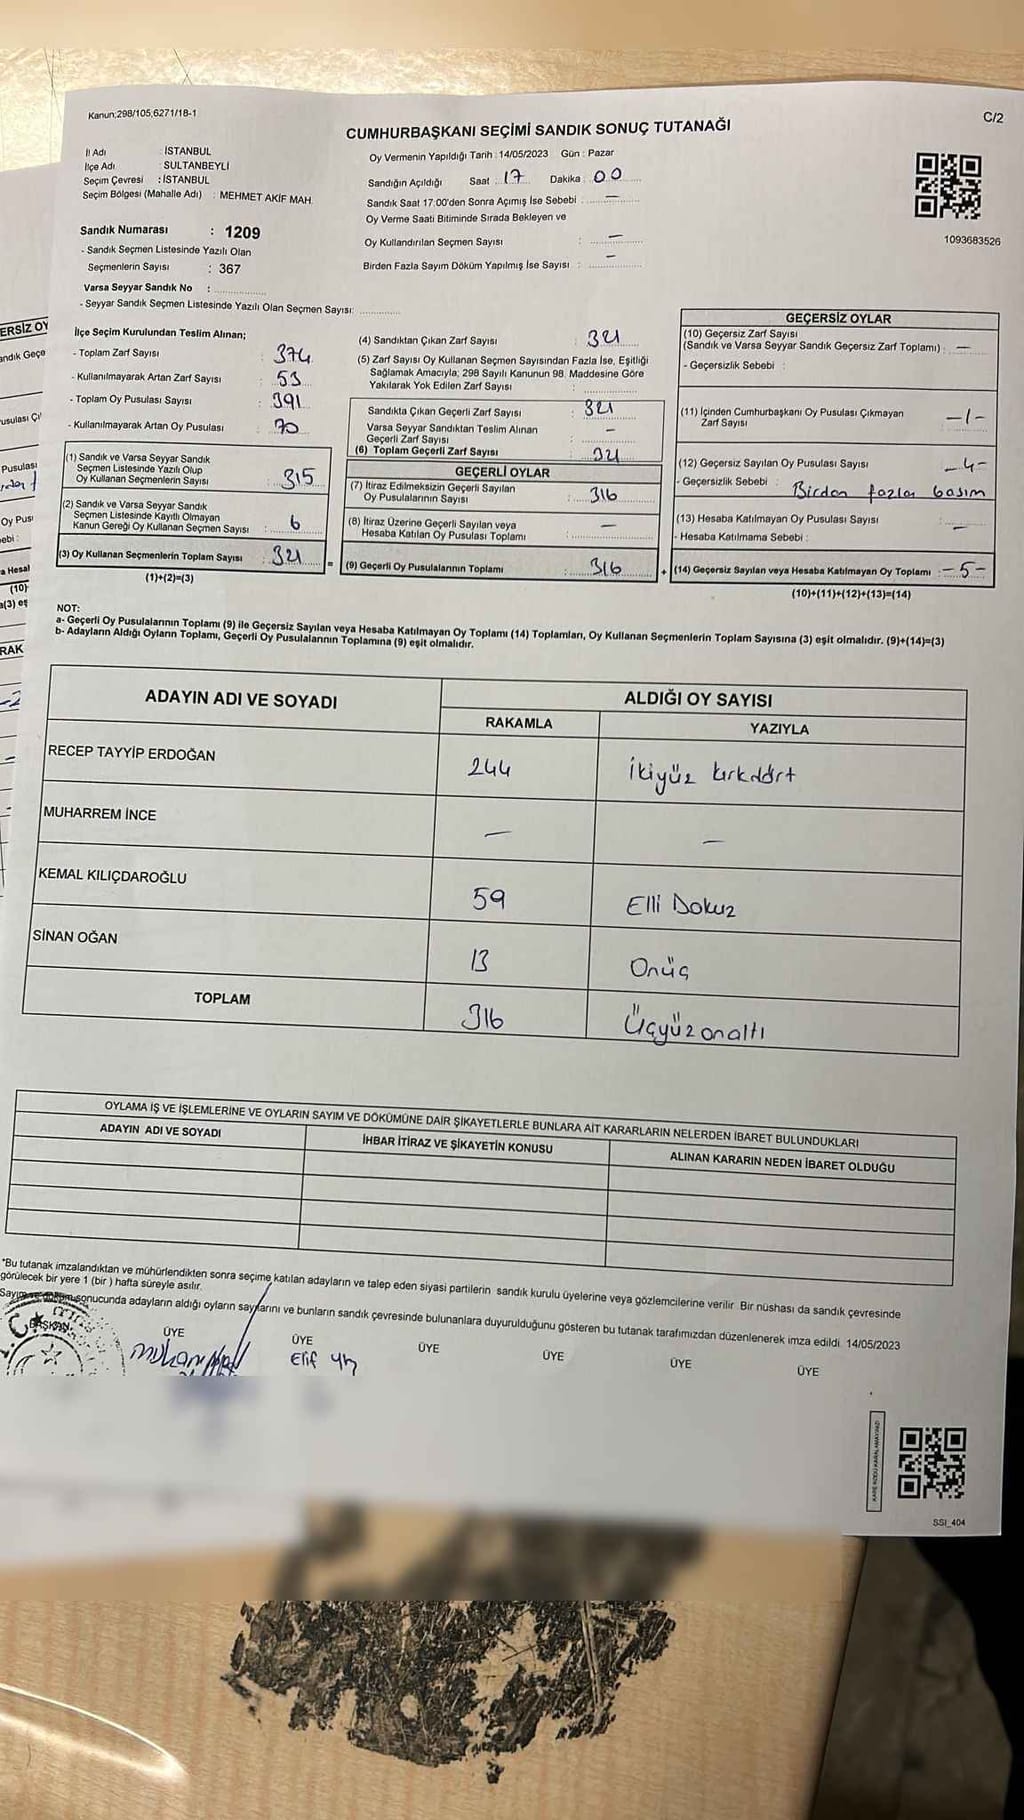 Kanun;298/105,6271/18-1
C/2
CUMHURBAŞKANI SEÇİMİ SANDIK SONUÇ TUTANAĞI
İl Adı : İSTANBUL
İlçe Adı : SULTANBEYLİ
Seçim Çevresi : İSTANBUL
Seçim Bölgesi (Mahalle Adı) : MEHMET AKİF MAH.
Oy Vermenin Yapıldığı Tarih : 14/05/2023 Gün : Pazar
Sandığın Açıldığı Saat : 17 Dakika : 00
Sandık Saat 17:00'den Sonra Açımış İse Sebebi : —
Oy Verme Saati Bitiminde Sırada Bekleyen ve
Oy Kullandırılan Seçmen Sayısı : —
Birden Fazla Sayım Döküm Yapılmış İse Sayısı : —
1093683526
Sandık Numarası : 1209
- Sandık Seçmen Listesinde Yazılı Olan
Seçmenlerin Sayısı : 367
Varsa Seyyar Sandık No :
- Seyyar Sandık Seçmen Listesinde Yazılı Olan Seçmen Sayısı:
İlçe Seçim Kurulundan Teslim Alınan;
- Toplam Zarf Sayısı : 374
- Kullanılmayarak Artan Zarf Sayısı : 53
- Toplam Oy Pusulası Sayısı : 391
- Kullanılmayarak Artan Oy Pusulası : 70
(1) Sandık ve Varsa Seyyar Sandık
Seçmen Listesinde Yazılı Olup
Oy Kullanan Seçmenlerin Sayısı : 315
(2) Sandık ve Varsa Seyyar Sandık
Seçmen Listesinde Kayıtlı Olmayan
Kanun Gereği Oy Kullanan Seçmen Sayısı : 6
(3) Oy Kullanan Seçmenlerin Toplam Sayısı : 321
(1)+(2)=(3)
(4) Sandıktan Çıkan Zarf Sayısı : 321
(5) Zarf Sayısı Oy Kullanan Seçmen Sayısından Fazla İse, Eşitliği
Sağlamak Amacıyla; 298 Sayılı Kanunun 98. Maddesine Göre
Yakılarak Yok Edilen Zarf Sayısı :
Sandıkta Çıkan Geçerli Zarf Sayısı : 321
Varsa Seyyar Sandıktan Teslim Alınan
Geçerli Zarf Sayısı : —
(6) Toplam Geçerli Zarf Sayısı : 321
GEÇERLİ OYLAR
(7) İtiraz Edilmeksizin Geçerli Sayılan
Oy Pusulalarının Sayısı : 316
(8) İtiraz Üzerine Geçerli Sayılan veya
Hesaba Katılan Oy Pusulası Toplamı : —
=
(9) Geçerli Oy Pusulalarının Toplamı : 316
+
GEÇERSİZ OYLAR
(10) Geçersiz Zarf Sayısı
(Sandık ve Varsa Seyyar Sandık Geçersiz Zarf Toplamı) : —
- Geçersizlik Sebebi :
(11) İçinden Cumhurbaşkanı Oy Pusulası Çıkmayan
Zarf Sayısı : -1-
(12) Geçersiz Sayılan Oy Pusulası Sayısı : -4-
- Geçersizlik Sebebi : Birden fazla basım
(13) Hesaba Katılmayan Oy Pusulası Sayısı : —
- Hesaba Katılmama Sebebi :
(14) Geçersiz Sayılan veya Hesaba Katılmayan Oy Toplamı : -5-
(10)+(11)+(12)+(13)=(14)
NOT:
a- Geçerli Oy Pusulalarının Toplamı (9) ile Geçersiz Sayılan veya Hesaba Katılmayan Oy Toplamı (14) Toplamları, Oy Kullanan Seçmenlerin Toplam Sayısına (3) eşit olmalıdır. (9)+(14)=(3)
b- Adayların Aldığı Oyların Toplamı, Geçerli Oy Pusulalarının Toplamına (9) eşit olmalıdır.
ADAYIN ADI VE SOYADI
ALDIĞI OY SAYISI
RAKAMLA YAZIYLA
RECEP TAYYİP ERDOĞAN 244 İkiyüz kırkdört
MUHARREM İNCE — —
KEMAL KILIÇDAROĞLU 59 Elli Dokuz
SİNAN OĞAN 13 Onüç
TOPLAM 316 Üçyüzonaltı
OYLAMA İŞ VE İŞLEMLERİNE VE OYLARIN SAYIM VE DÖKÜMÜNE DAİR ŞİKAYETLERLE BUNLARA AİT KARARLARIN NELERDEN İBARET BULUNDUKLARI
ADAYIN ADI VE SOYADI İHBAR İTİRAZ VE ŞİKAYETİN KONUSU ALINAN KARARIN NEDEN İBARET OLDUĞU
*Bu tutanak imzalandıktan ve mühürlendikten sonra seçime katılan adayların ve talep eden siyasi partilerin sandık kurulu üyelerine veya gözlemcilerine verilir. Bir nüshası da sandık çevresinde
görülecek bir yere 1 (bir ) hafta süreyle asılır.
sonucunda adayların aldığı oyların sayılarını ve bunların sandık çevresinde bulunanlara duyurulduğunu gösteren bu tutanak tarafımızdan düzenlenerek imza edildi. 14/05/2023
BAŞKAN ÜYE ÜYE ÜYE ÜYE ÜYE ÜYE
Elif
SSI_404